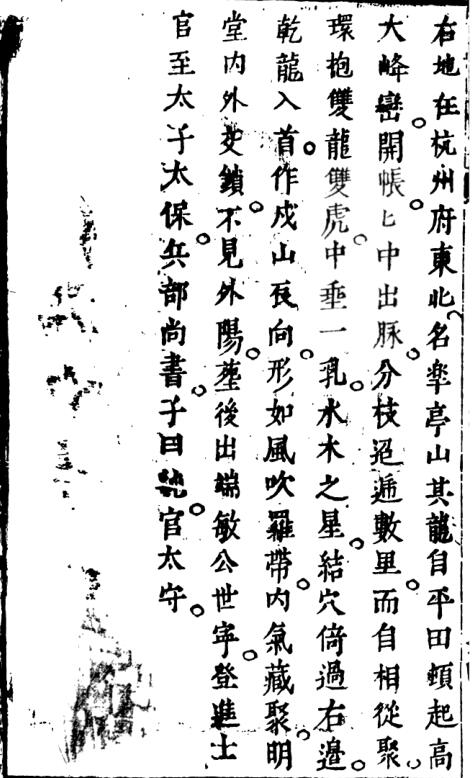 右地在杭州府東北名皐亭山其龍自平田頓起高
大峰巒開帳匕中出脉分枝迢遞數里而自相從聚
環抱雙龍雙虎中垂一乳水木之星結穴倚過右邉
乾龍入首作戍山辰向形如風吹羅帶内氣藏聚明
堂内外交鎖不見外陽塟後出端敏公世寜登進士
官至太子太保兵部尚書子曰官太守